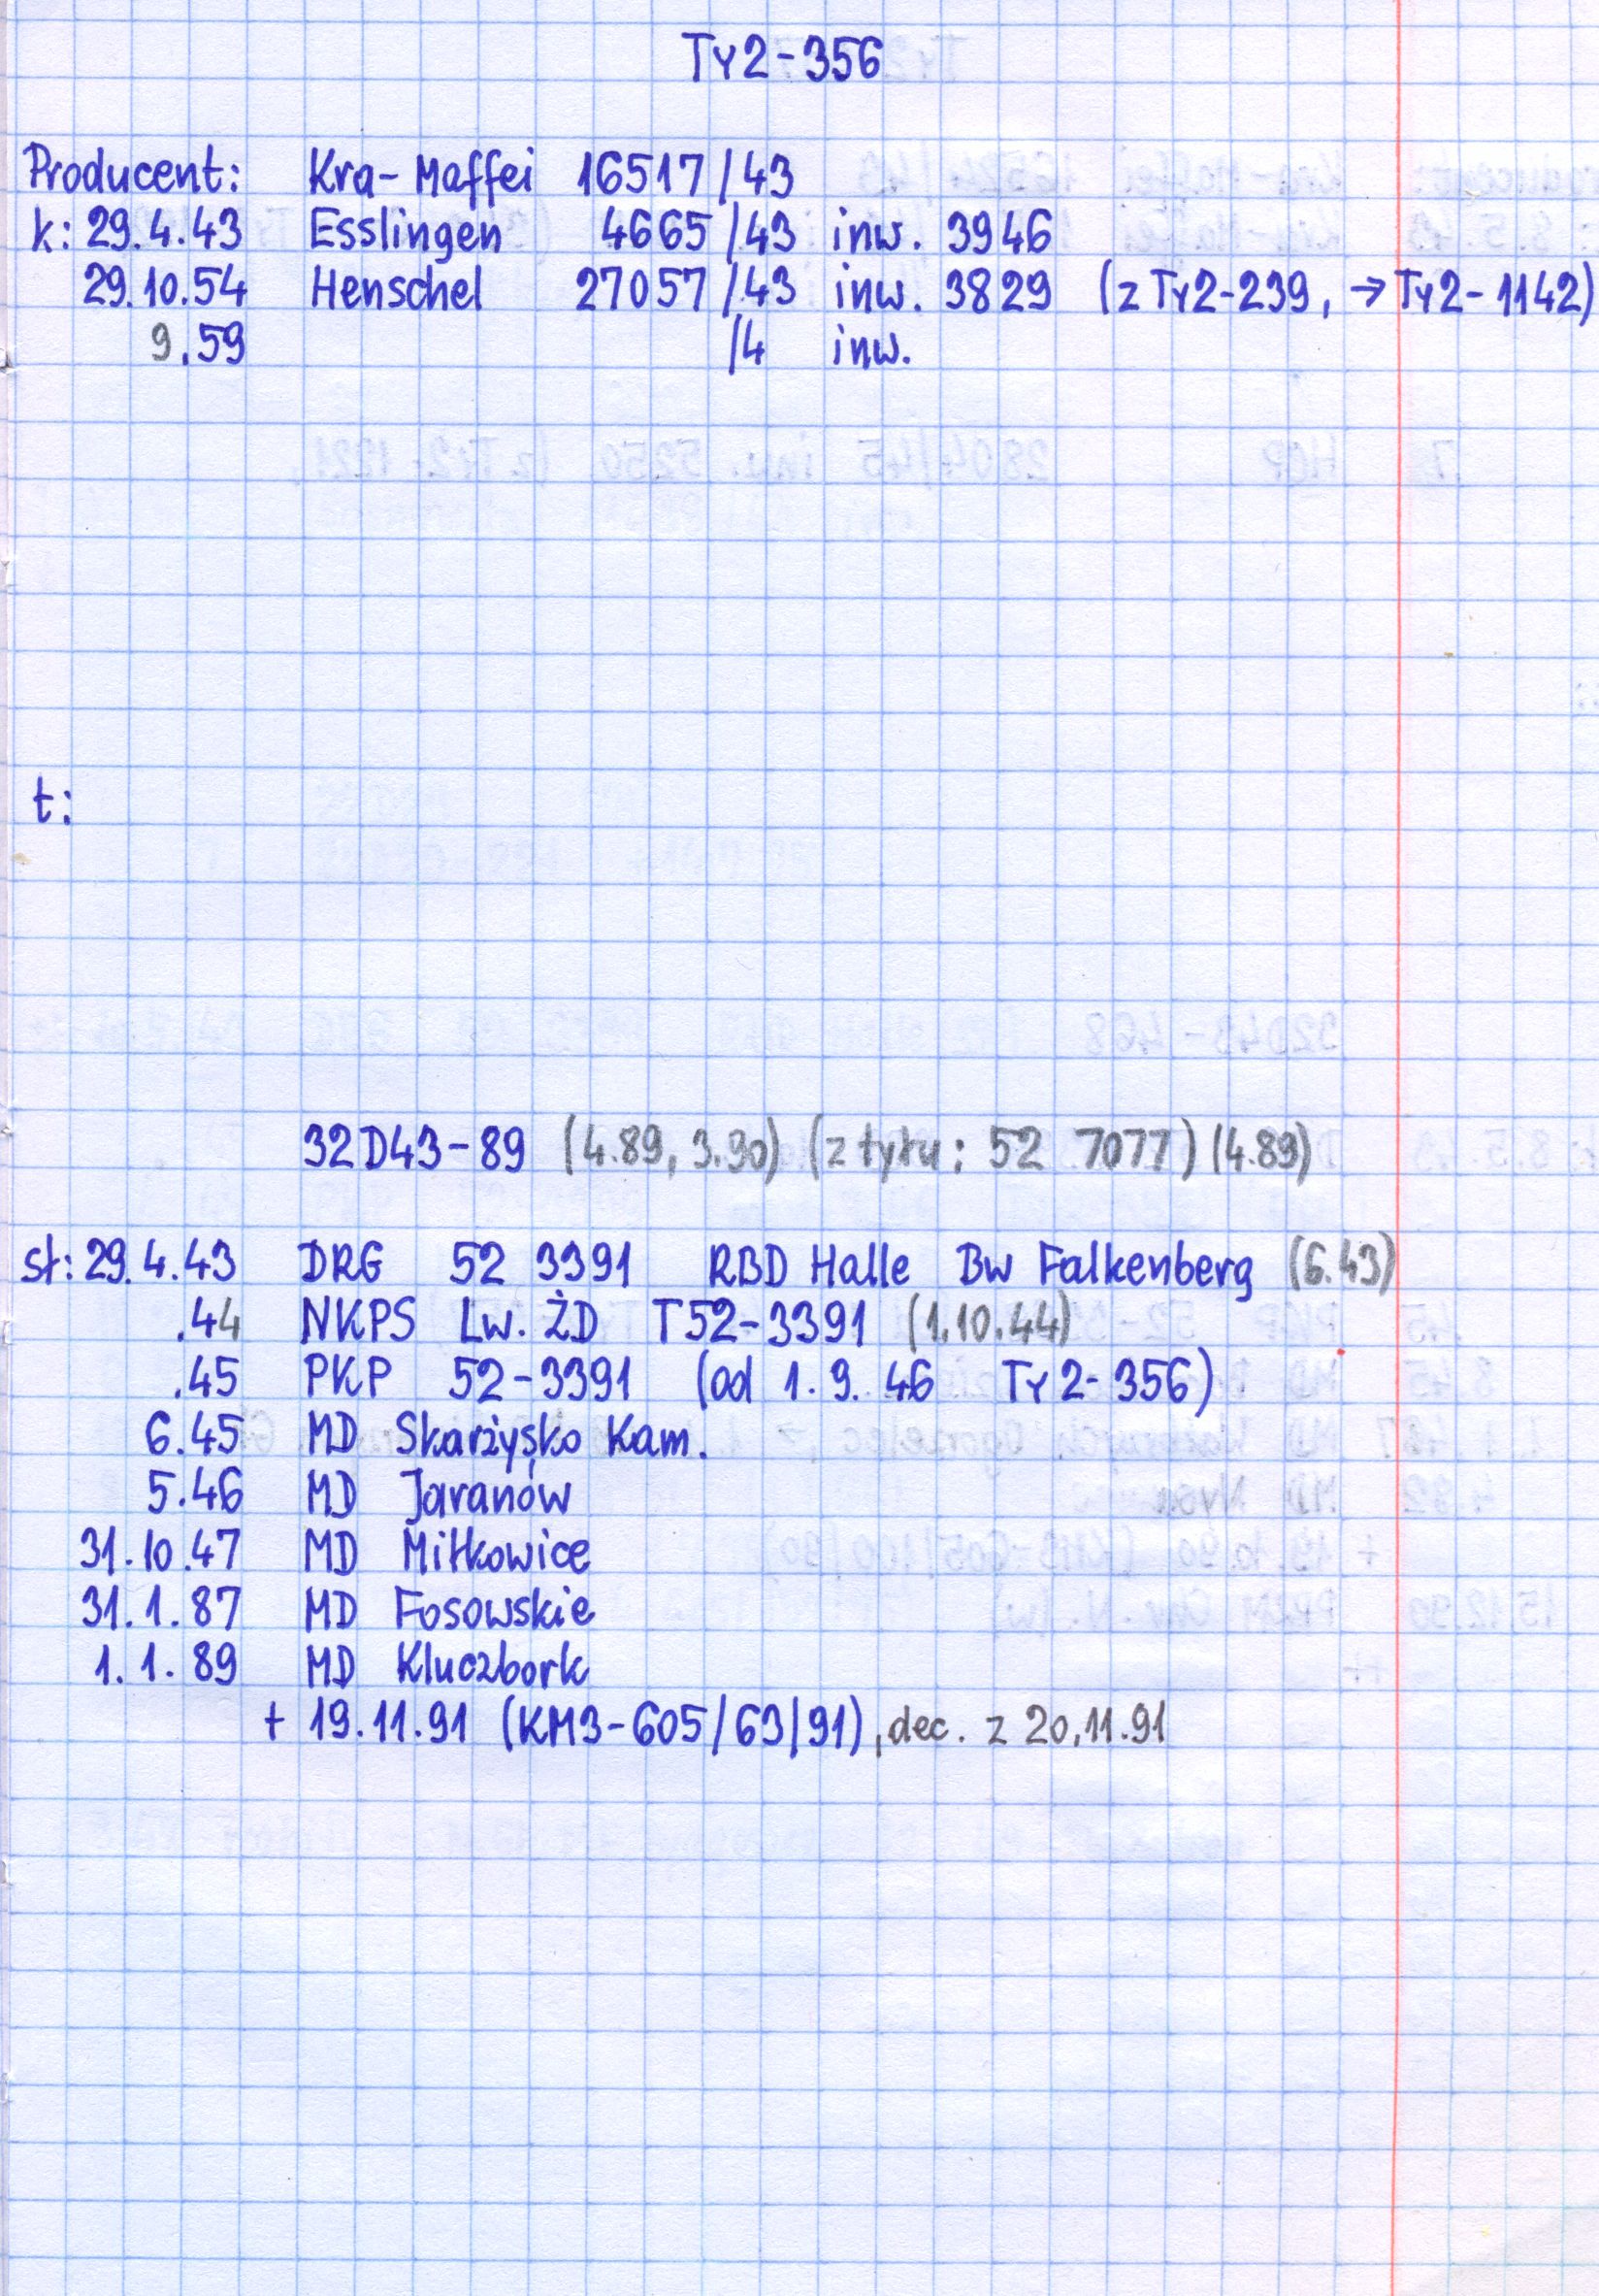 Ty2-356
Producent: Kra-Maffei 16517/43
k: 29.4.43 Esslingen 4665/43 inw. 3946
29.10.54 Henschel 27057/43 inw. 3829 (z Ty2-239, → Ty2-1142)
9.59 /4 inw.
t:
32D43-89 (4.89, 3.90) (z tyłu: 52 7077) (4.89)
st: 29.4.43 DRG 52 3391 RBD Halle Bw Falkenberg (6.43)
.44 NKPS Lw. ŻD T52-3391 (1.10.44)
.45 PKP 52-3391 (od 1.9.46 Ty2-356)
6.45 MD Skarżysko Kam.
5.46 MD Jaranów
31.10.47 MD Miłkowice
31.1.87 MD Fosowskie
1.1.89 MD Kluczbork
+ 19.11.91 (KM3-605/63/91), dec. z 20.11.91